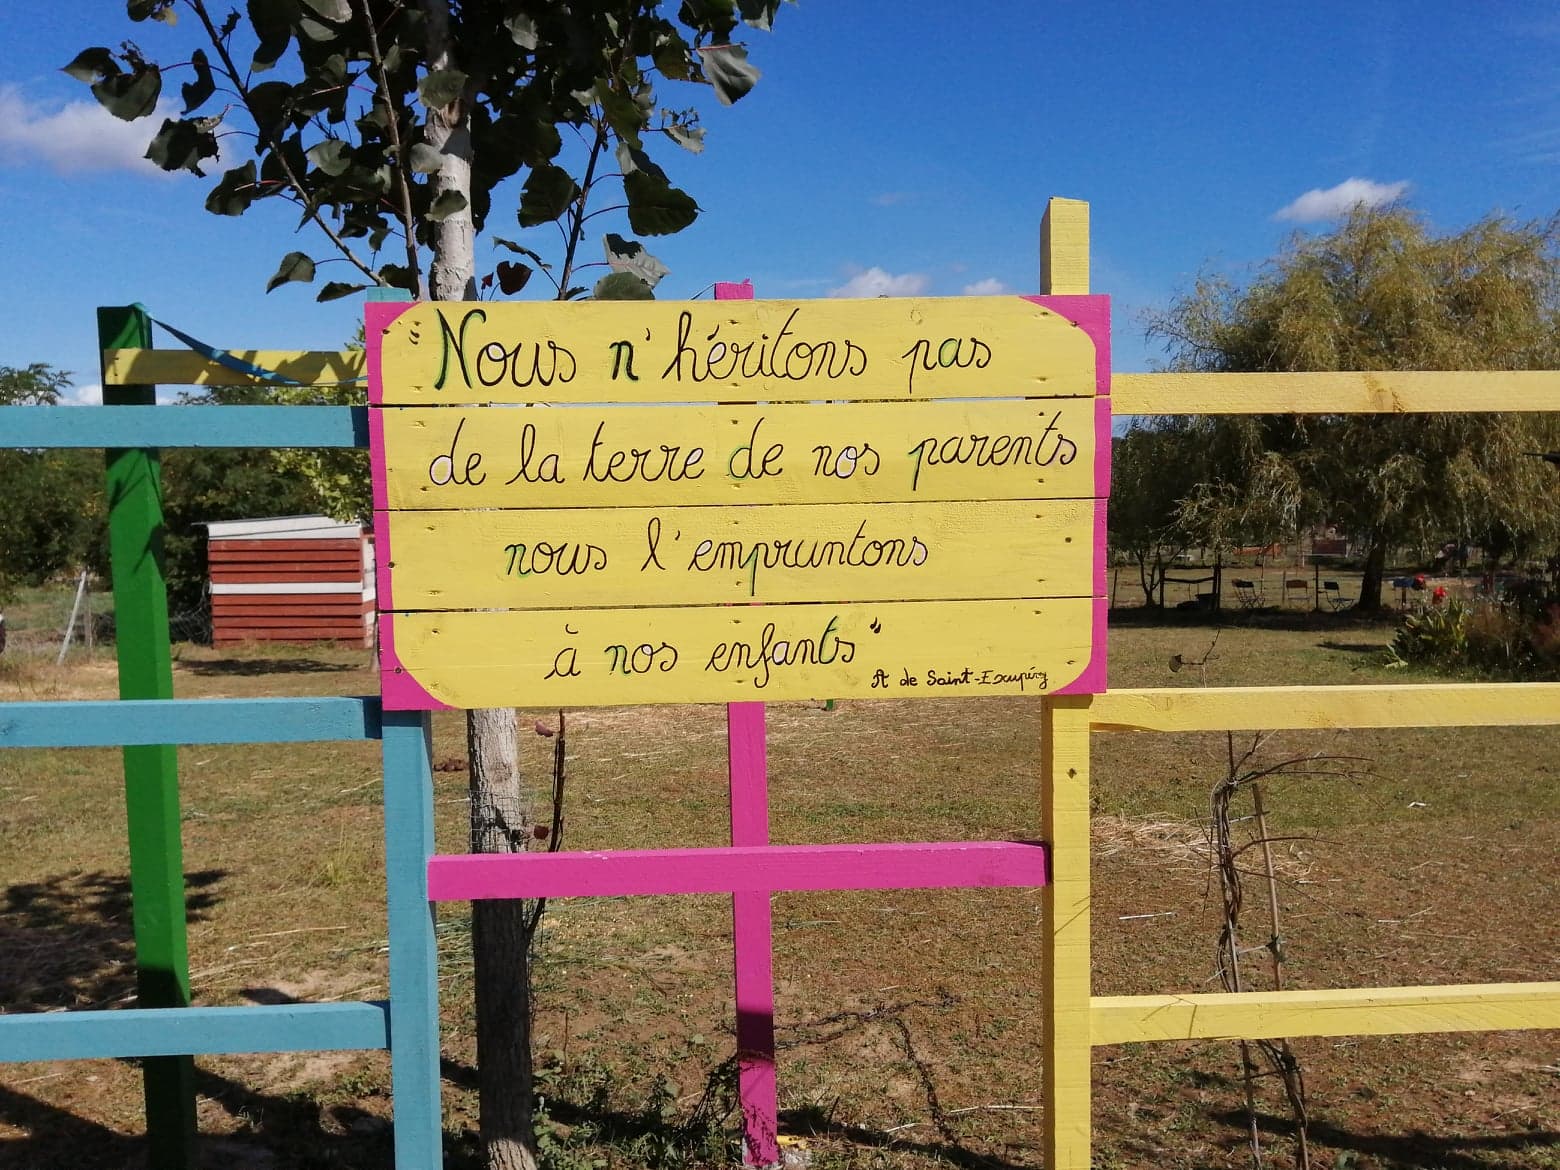 "Nous n'héritons pas
de la terre de nos parents
nous l'empruntons
à nos enfants"
A de Saint-Exupéry